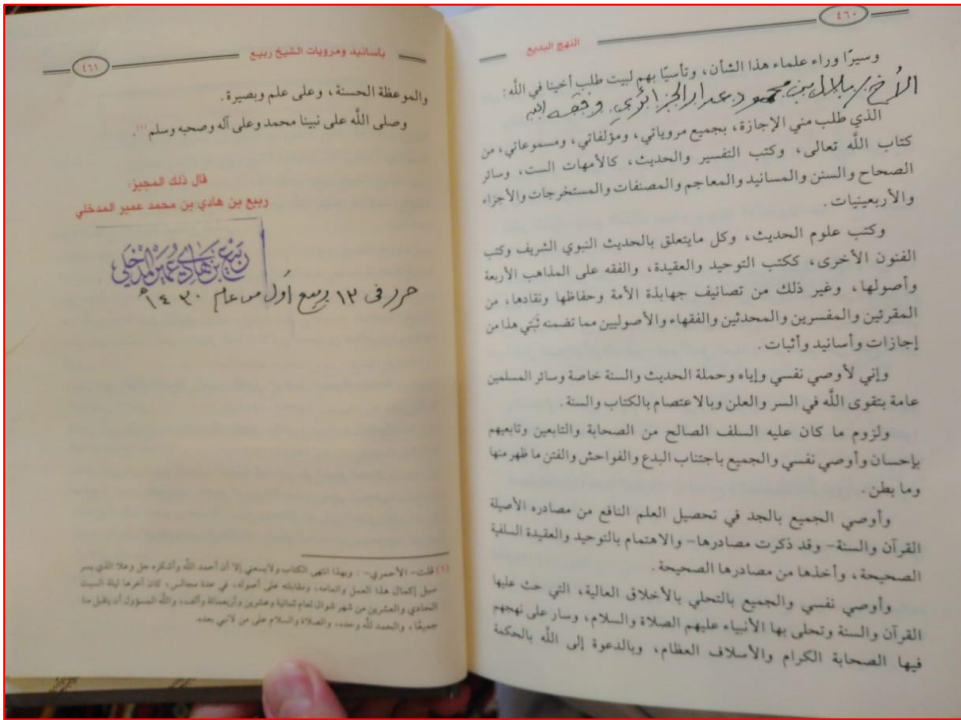 ٤٦٠
النهج البديع
وسيرًا وراء علماء هذا الشأن، وتأسيًا بهم لبيت طلب أخينا في الله:
الأخ / بلال بن محمود عدار الجزائري وفقه الله
الذي طلب مني الإجازة، بجميع مروياتي، ومؤلفاتي، ومسموعاتي، من
كتاب الله تعالى، وكتب التفسير والحديث، كالأمهات الست، وسائر
الصحاح والسنن والمسانيد والمعاجم والمصنفات والمستخرجات والأجزاء
والأربعينيات.
وكتب علوم الحديث، وكل مايتعلق بالحديث النبوي الشريف وكتب
الفنون الأخرى، ككتب التوحيد والعقيدة، والفقه على المذاهب الأربعة
وأصولها، وغير ذلك من تصانيف جهابذة الأمة وحفاظها ونقادها، من
المقرئين والمفسرين والمحدثين والفقهاء والأصوليين مما تضمنه ثَبَتي هذا من
إجازات وأسانيد وأثبات.
وإني لأوصي نفسي وإياه وحملة الحديث والسنة خاصة وسائر المسلمين
عامة بتقوى اللَّه في السر والعلن وبالاعتصام بالكتاب والسنة.
ولزوم ما كان عليه السلف الصالح من الصحابة والتابعين وتابعيهم
بإحسان وأوصي نفسي والجميع باجتناب البدع والفواحش والفتن ما ظهر منها
وما بطن.
وأوصي الجميع بالجد في تحصيل العلم النافع من مصادره الأصيلة
القرآن والسنة- وقد ذكرت مصادرها- والاهتمام بالتوحيد والعقيدة السلفية
الصحيحة، وأخذها من مصادرها الصحيحة.
وأوصي نفسي والجميع بالتحلي بالأخلاق العالية، التي حث عليها
القرآن والسنة وتحلى بها الأنبياء عليهم الصلاة والسلام، وسار على نهجهم
فيها الصحابة الكرام والأسلاف العظام، وبالدعوة إلى اللَّه بالحكمة
بأسانيد ومرويات الشيخ ربيع
٤٦١
والموعظة الحسنة، وعلى علم وبصيرة.
وصلى اللَّه على نبينا محمد وعلى آله وصحبه وسلم(١).
قال ذلك المجيز:
ربيع بن هادي بن محمد عمير المدخلي
ربيع بن هادي عمير المدخلي
حرر في ١٣ ربيع أول من عام ١٤٣٠هـ
(١) قلت- الأحمري-: وبهذا انتهى الكتاب ولايسعني إلا أن أحمد الله وأشكره جل وعلا الذي يسر
سبل إكمال هذا العمل وإتمامه، ومقابلته على أصوله، في عدة مجالس، كان آخرها ليلة السبت
الحادي والعشرين من شهر شوال لعام ثمانية وعشرين وأربعمائة وألف، واللَّه المسؤول أن يتقبل منا
جميعًا، والحمد للَّه وحده، والصلاة والسلام على من لانبي بعده.